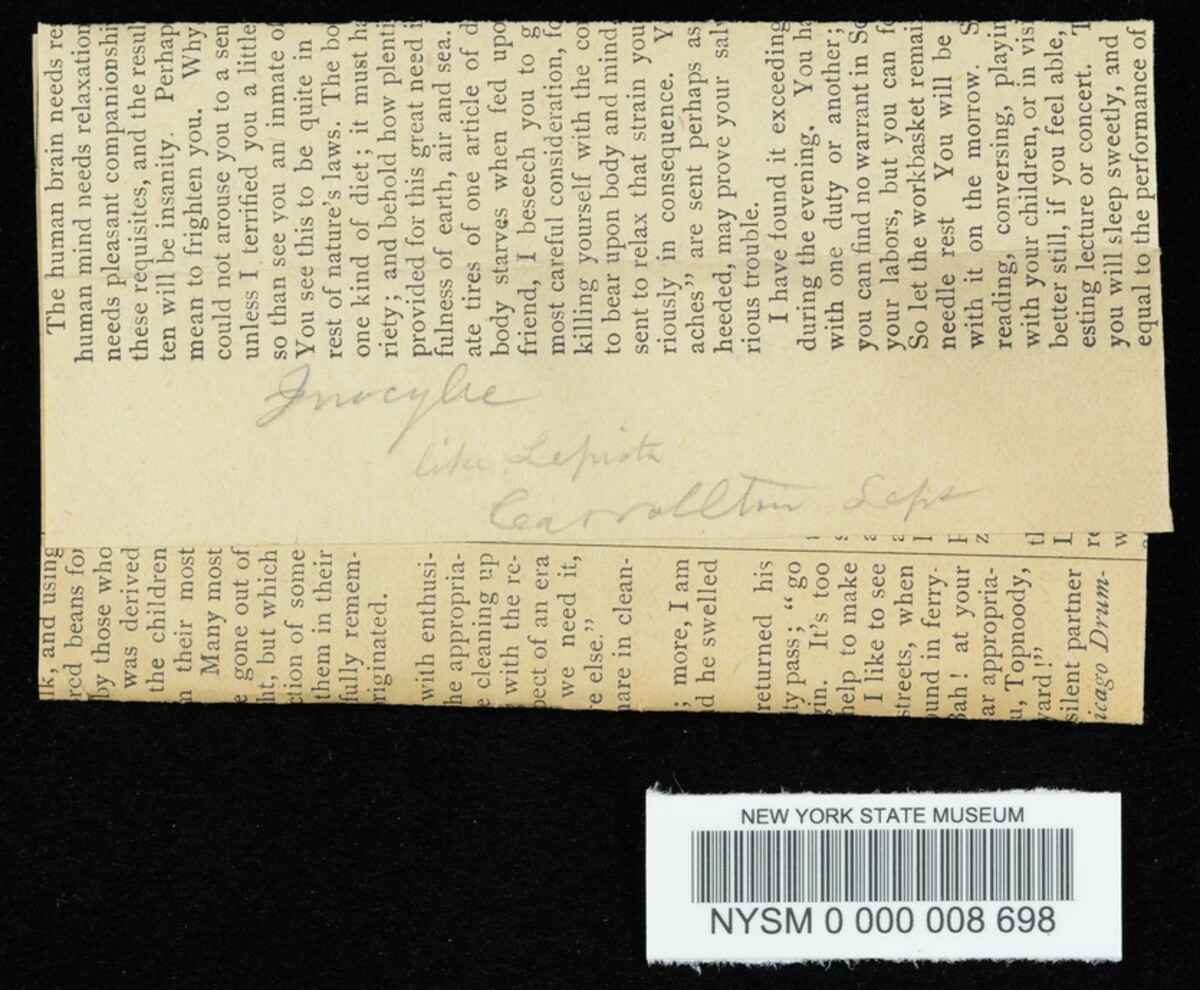 The human brain needs re
human mind needs relaxation
needs pleasant companionshi
these requisites, and the resul
ten will be insanity. Perhap
mean to frighten you. Why
could not arouse you to a sen
unless I terrified you a little
so than see you an inmate of
You see this to be quite in
rest of nature's laws. The bo
one kind of diet; it must ha
riety; and behold how plenti
provided for this great need i
fulness of earth, air and sea.
ate tires of one article of d
body starves when fed upo
friend, I beseech you to g
most careful consideration, fo
killing yourself with the co
to bear upon body and mind
sent to relax that strain you
riously in consequence. Y
aches" are sent perhaps as
heeded, may prove your sal
rious trouble.
I have found it exceeding
during the evening. You ha
with one duty or another;
you can find no warrant in Sc
your labors, but you can fo
So let the workbasket remai
needle rest You will be
with it on the morrow. S
reading, conversing, playin
with your children, or in visi
better still, if you feel able,
esting lecture or concert. T
you will sleep sweetly, and
equal to the performance of
Inocybe
like Lepiota
Carrollton Sept
lk, and using
rced beans for
by those who
was derived
the children
n their most
Many most
e gone out of
ht, but which
ction of some
them in their
fully remem-
riginated.
with enthusi-
he appropria-
e cleaning up
with the re-
pect of an era
we need it,
e else."
hare in clean-
; more, I am
d he swelled
returned his
ty pass; "go
vin. It's too
help to make
I like to see
streets, when
ound in ferry-
Bah! at your
ar appropria-
u, Topnoody,
yard!"
silent partner
icago Drum-
NEW YORK STATE MUSEUM
NYSM 0 000 008 698